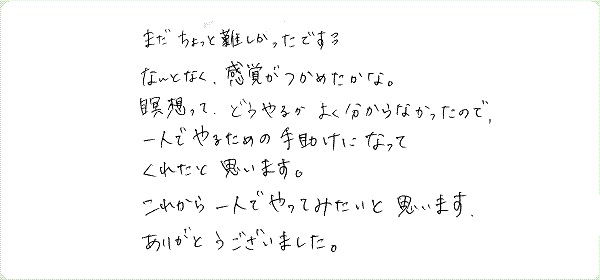 まだちょっと難しかったでする
なんとなく、感覚がつかめたかな。
瞑想って、どうやるか よく分からなかったので、
一人でやるための手助けになって
くれたと思います。
これから一人でやってみたいと思います.
ありがとうございました。